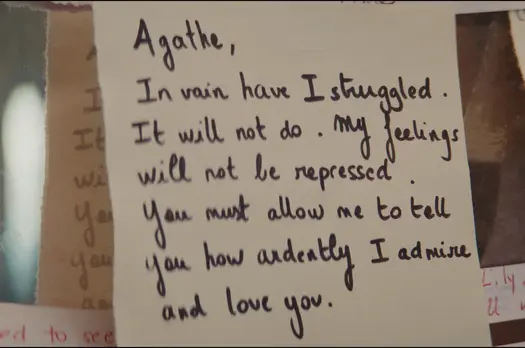 Agathe,
In vain have I struggled.
It will not do. My feelings
will not be repressed.
You must allow me to tell
you how ardently I admire
and love you.
I
It
wi
You
you
an
ed to see
Lily,